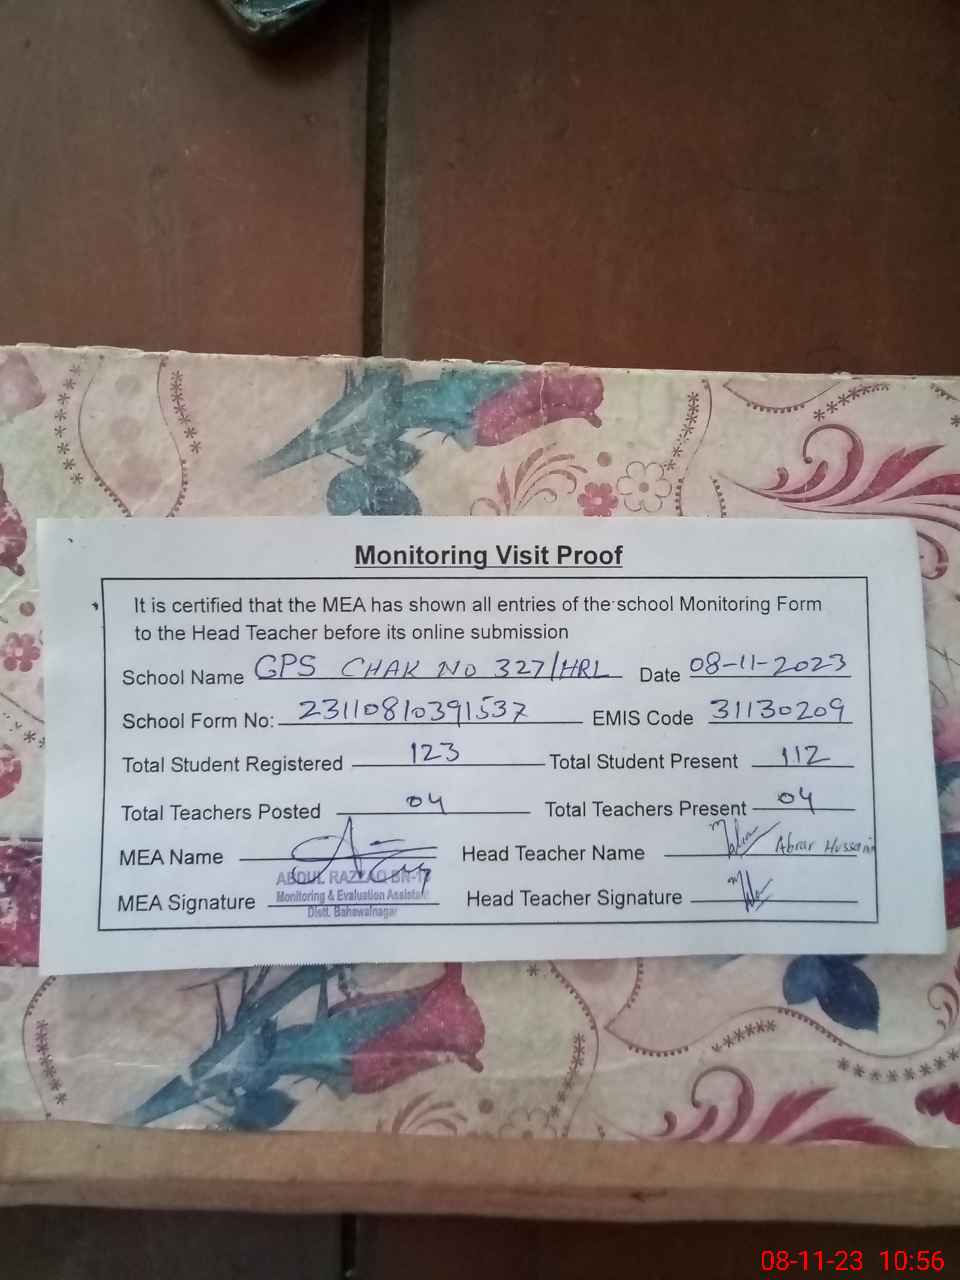 Monitoring Visit Proof
It is certified that the MEA has shown all entries of the school Monitoring Form
to the Head Teacher before its online submission
School Name GPS CHAK NO 327/HRL Date 08-11-2023
School Form No: 23110810391537 EMIS Code 31130209
Total Student Registered 123 Total Student Present 112
Total Teachers Posted 04 Total Teachers Present 04
MEA Name Head Teacher Name Abrar Hussain
ABDUL RAZZAQ
MEA Signature Monitoring & Evaluation Assistant Head Teacher Signature
Distt. Bahawalnagar
08-11-23 10:56